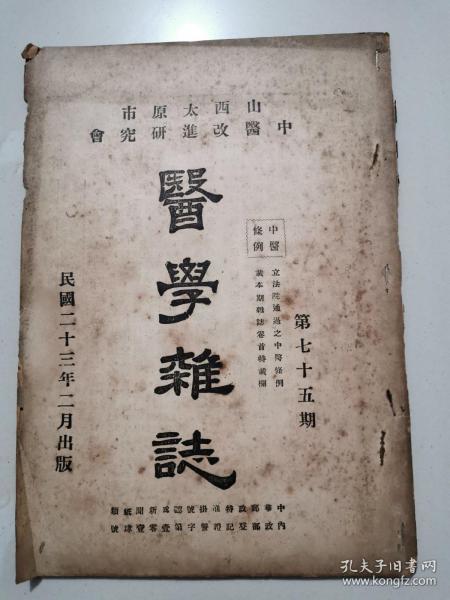 山西太原市
中醫改進研究會
中醫
條例
立法院通過之中醫條例
載本期雜誌卷首特載欄
第七十五期
醫學雜誌
民國二十三年二月出版
中華郵政特准掛號認爲新聞紙類
內政部登記證警字第壹零壹號
孔夫子旧书网
kongfz.com